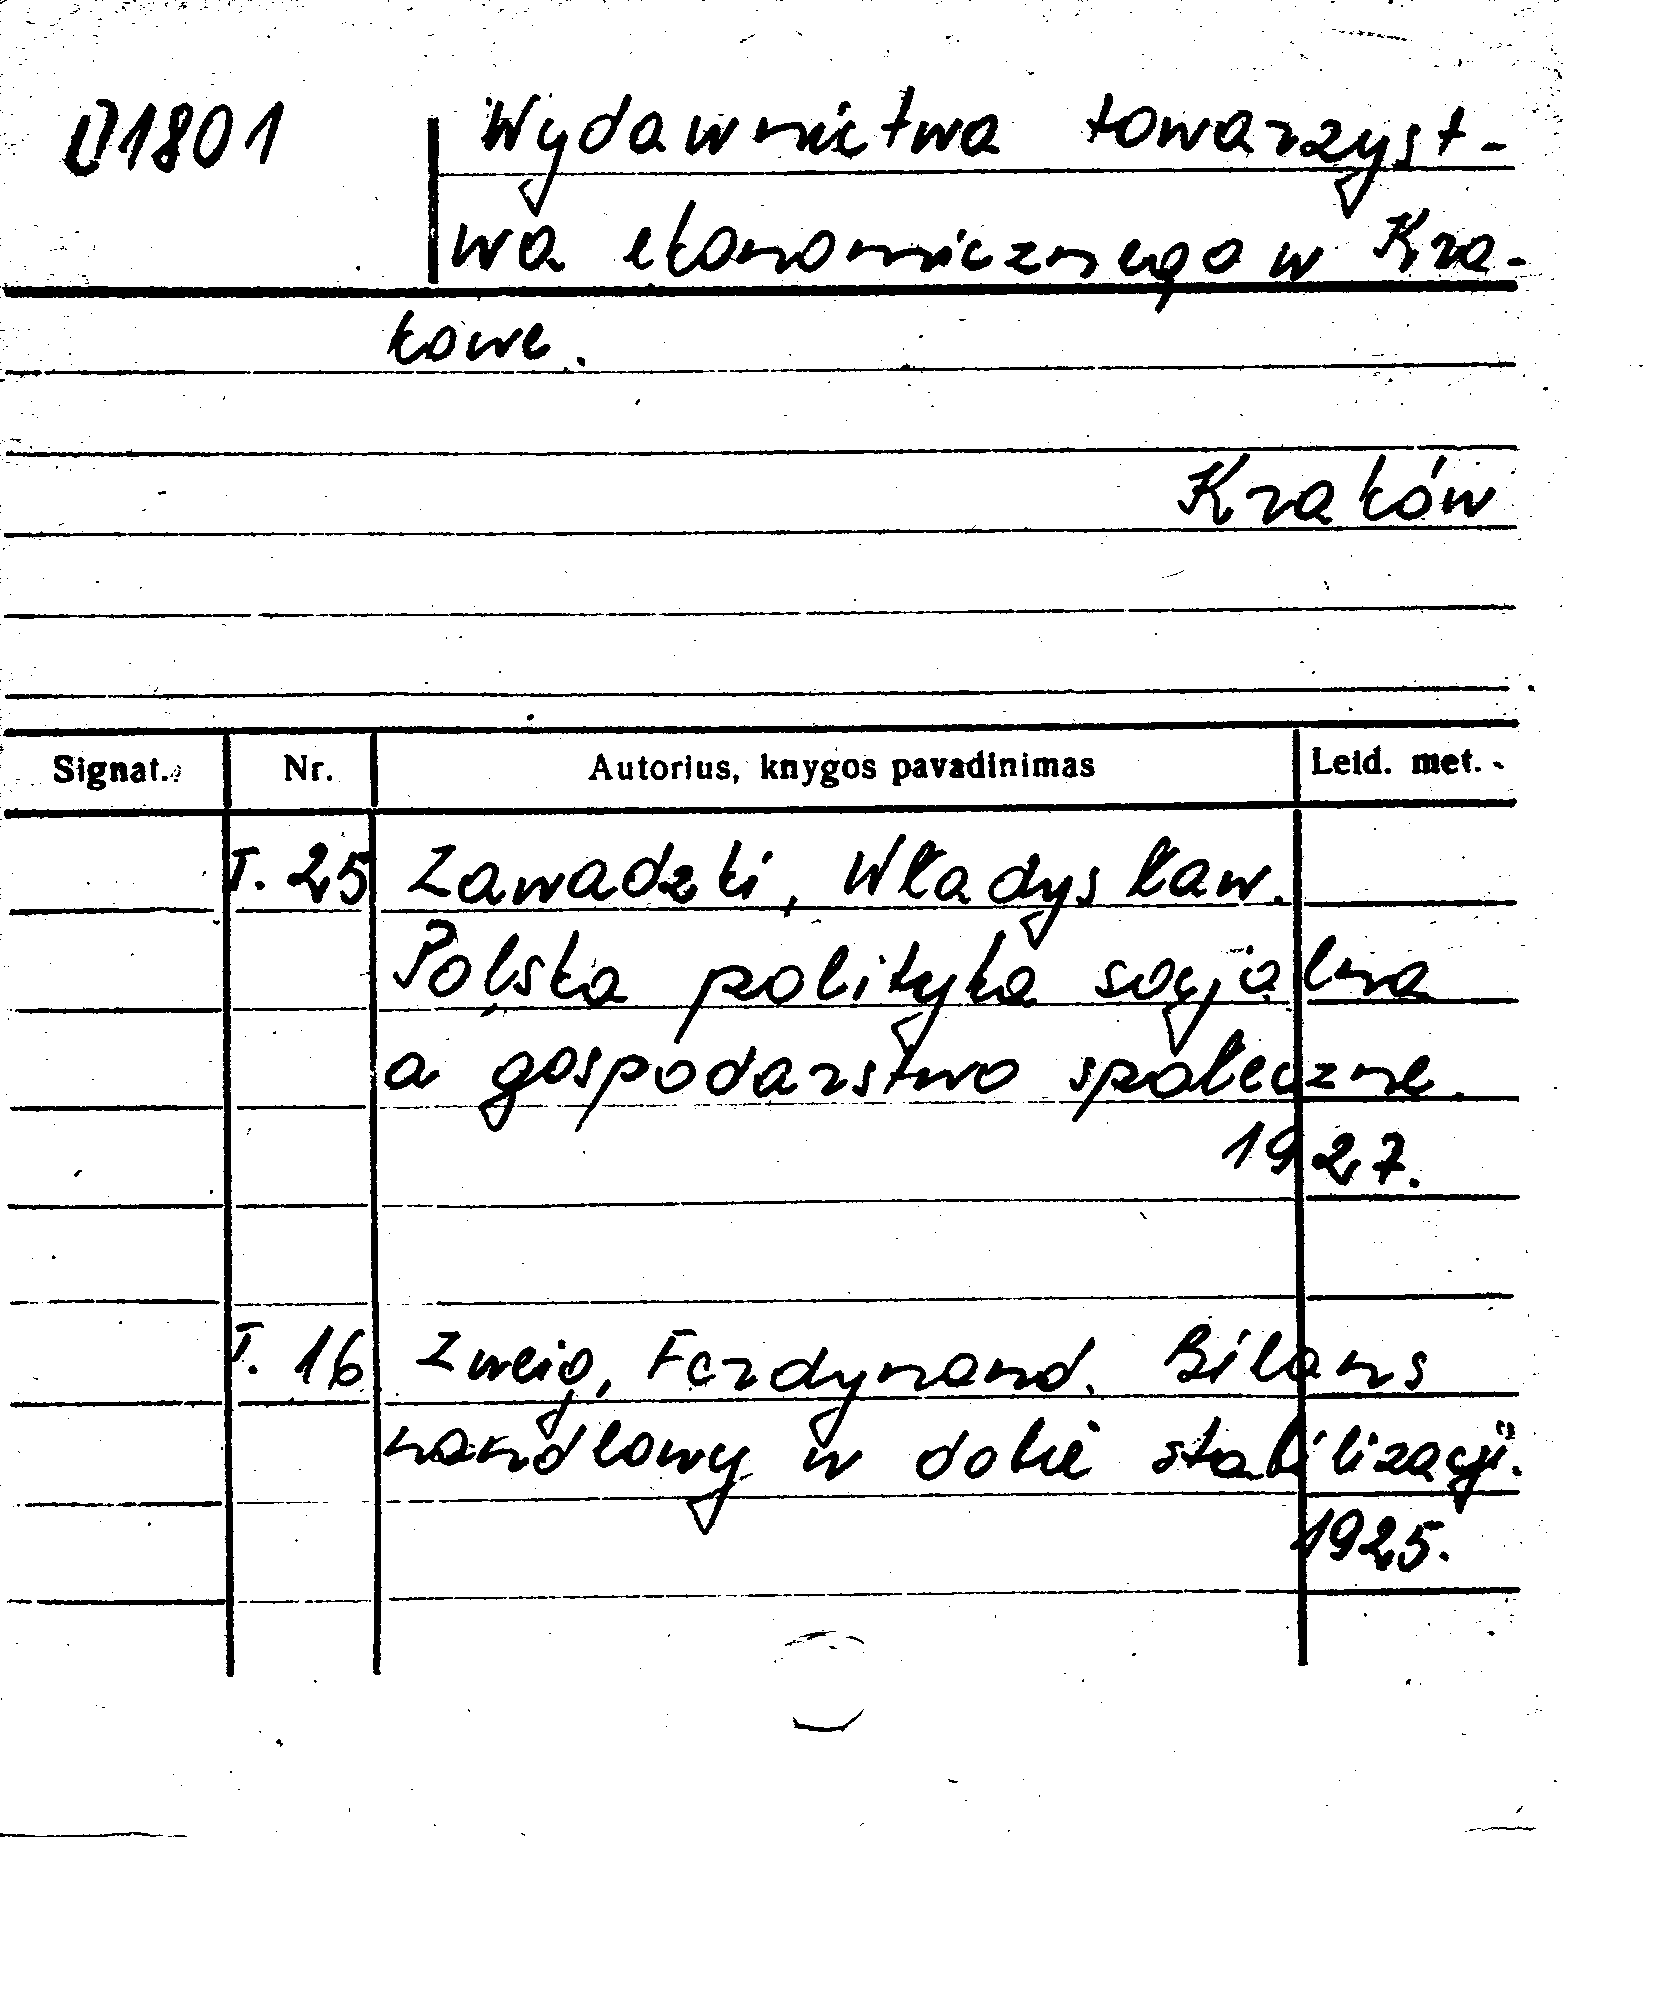 D1801 Wydawnictwa towarzyst-
wa ekonomicznego w Kra-
kowe.
Kraków
Signat. Nr. Autorius, knygos pavadinimas Leid. met.
T. 25 Zawadzki, Władysław.
Polska polityka socjalna
a gospodarstwo społeczne.
1927.
T. 16 Zweig, Ferdynand. Bilans
handlowy w dobie stabilizacji.
1925.